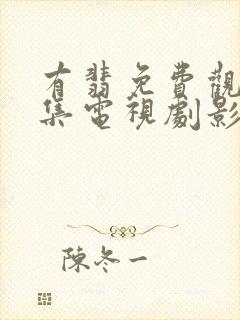 有翡免費觀
集電視劇影
陳冬一